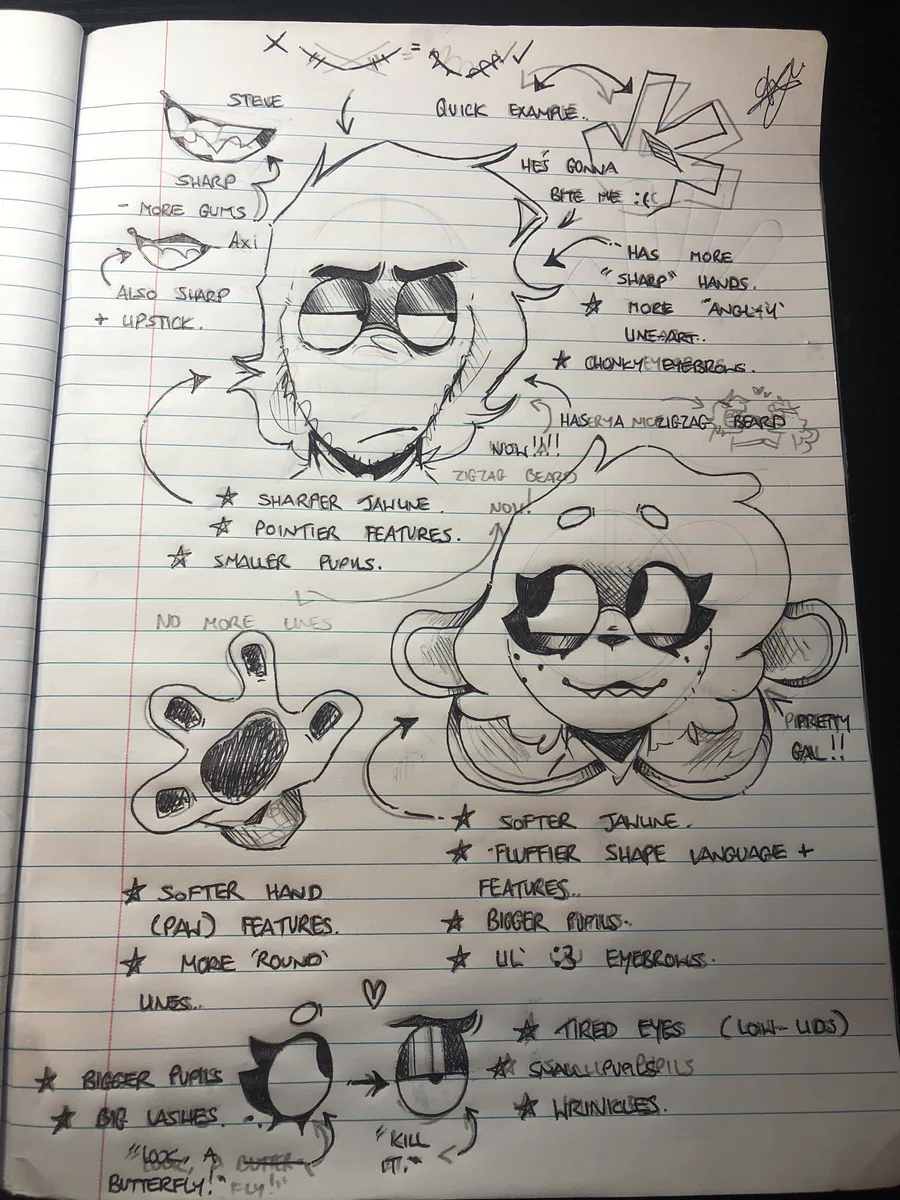 X = ✓✓
STEVE
QUICK EXAMPLE.
HE'S GONNA
BITE ME :((
SHARP
- MORE GUMS
Axi
ALSO SHARP
+ LIPSTICK.
HAS MORE
"SHARP" HANDS.
★ MORE "ANGLY"
LINEART..
★ CHONKY EYEBROWS.
HAS A ZIGZAG BEARD
NOW!!!
ZIGZAG BEARD
NOW!
★ SHARPER JAWLINE.
★ POINTIER FEATURES.
★ SMALLER PUPILS.
NO MORE LINES
PIPRETTY
GAL!!
★ SOFTER JAWLINE.
★ FLUFFIER SHAPE LANGUAGE +
FEATURES..
★ BIGGER PUPILS.
★ LIL' :3 EYEBROWS.
★ SOFTER HAND
(PAW) FEATURES.
★ MORE 'ROUND'
LINES..
★ BIGGER PUPILS
★ BIG LASHES.
"LOOK, A
BUTTERFLY!"
★ TIRED EYES (LOW-LIDS)
★ SMALL PUPILS
★ WRINKLES.
"KILL
IT."